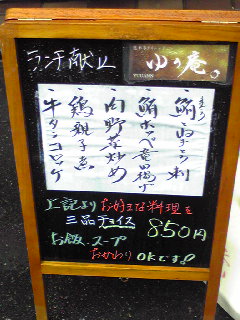 ランチ献立
ゆう庵。
YUUANN
鮪ホホベー竜田揚げ
肉野菜炒め
鶏親子煮
牛タンコロッケ
上記よりお好きな料理を
三品チョイス 850円
お飯、スープ
おかわりOKです!